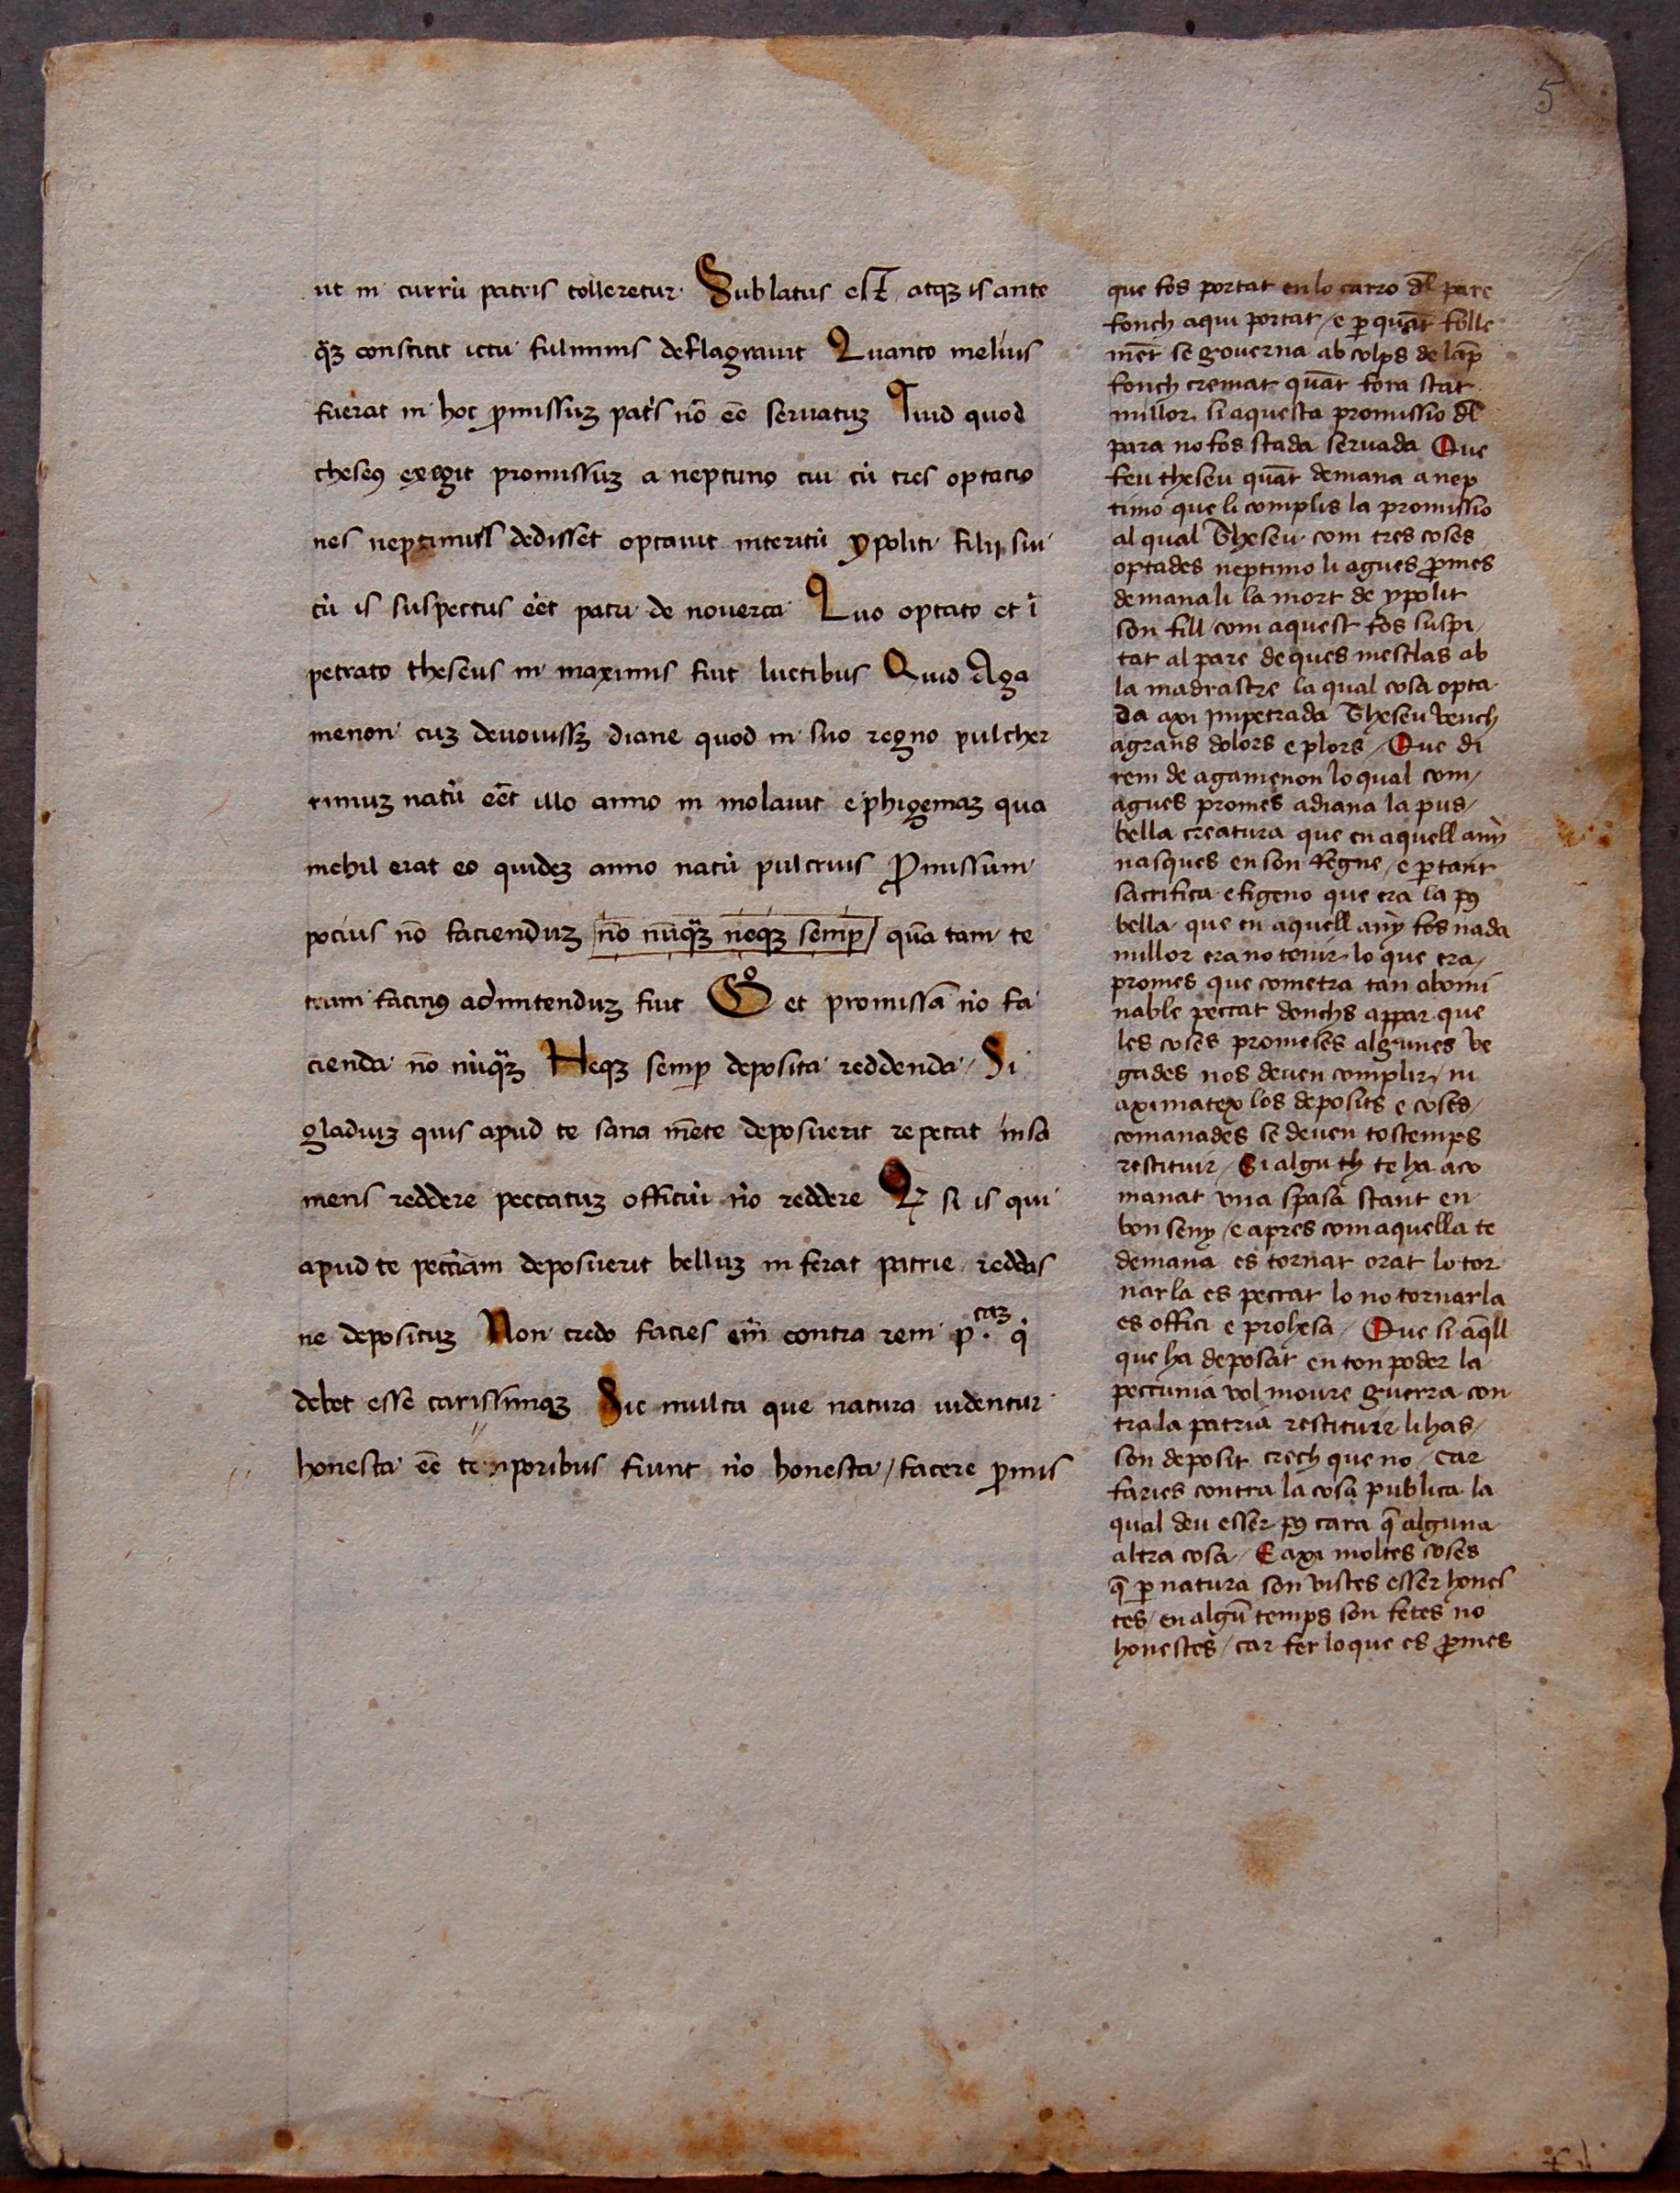 5
ut in currū patris tolleretur Sublatus est atqꝫ is ante
qꝫ constitit ictu fulminis deflagrauit Quanto melius
fuerat in hoc ꝓmissuꝫ pat's nō eē seruatuꝫ Quid quod
theseꝯ exegit promissuꝫ a neptuno cui cū tres optacio
nes neptunus dedisset optauit interitū ypoliti filii sui
cū is suspectus eēt patri de nouerca Quo optato et ī
petrato theseus in maximis fuit luctibus Quid Aga
menon cuꝫ deuouissꝫ diane quod in suo regno pulcher
rimuꝫ natū eēt illo anno in molauit ephigeniaꝫ qua
nichil erat eo quideꝫ anno natū pulcrius ꝓmissum
pocius nō facienduꝫ nō nūqꝫ neqꝫ semꝑ quā tam te
trum facinꝯ admitenduꝫ fuit Gͦ et promissa nō fa
cienda nō nūqꝫ Neqꝫ semꝑ deposita reddenda / Si
gladiuꝫ quis apud te sana mēte deposuerit repetat insa
niens reddere peccatuꝫ officiū nō reddere Qꝫ si is qui
apud te pecc̄iam deposuerit belluꝫ in ferat patrie reddas
ne depositum Non credo facies em̄ contra rem p. caꝫ q̇
debet esse carissimaꝫ Sic multa que natura uidentur
honesta eē temporibus fiunt nō honesta / facere ꝓmis
que fos portat en lo carro dl̄ pare
fonch aqui portat / e ꝑ quāt folle
mēt se gouerna ab colps de lāp
fonch cremat quāt fora stat
millor si aquesta promissio dl̄
para no fos stada seruada Que
feu theseu quāt demana a nep
timo que li complis la promissio
al qual Theseu com tres coses
optades neptimo li agues ꝓmes
demanali la mort de ypolit
son fill / com aquest fos suspi /
tat al pare de ques mesclas ab
la madrastre la qual cosa opta
da axi impetrada Theseu vench
a grans dolors e plors / Que di
rem de agamenon lo qual com /
agues promes a diana la pus /
bella creatura que en aquell any
nasques en son Regne / e ꝑ tant
sacrifica efigeno que era la pꝯ
bella que en aquell any fos nada
millor era no tenir lo que era /
promes que cometra tan abomi
nable peccat donchs appar que
les coses promeses algunes ve
gades nos deuen complir / ni
aximatex los deposits e coses /
comanades se deuen tostemps
restituir / Si alguth te ha aco
manat vna spasa stant en
bon seny / e apres com aquella te
demana es tornat orat lo tor
narla es peccat lo no tornarla
es offici e prohesa / Que si aq̄ll
que ha deposat en ton poder la
peccunia vol moure guerra con
tra la patria restituir li has /
son deposit crech que no / car
faries contra la cosa publica la
qual deu esser pꝯ cara q̄ alguna
altra cosa / E axi moltes coses
q̄ ꝑ natura son vistes esser hones
tes / en algū temps son fetes no
honestes / car fer lo que es ꝓmes